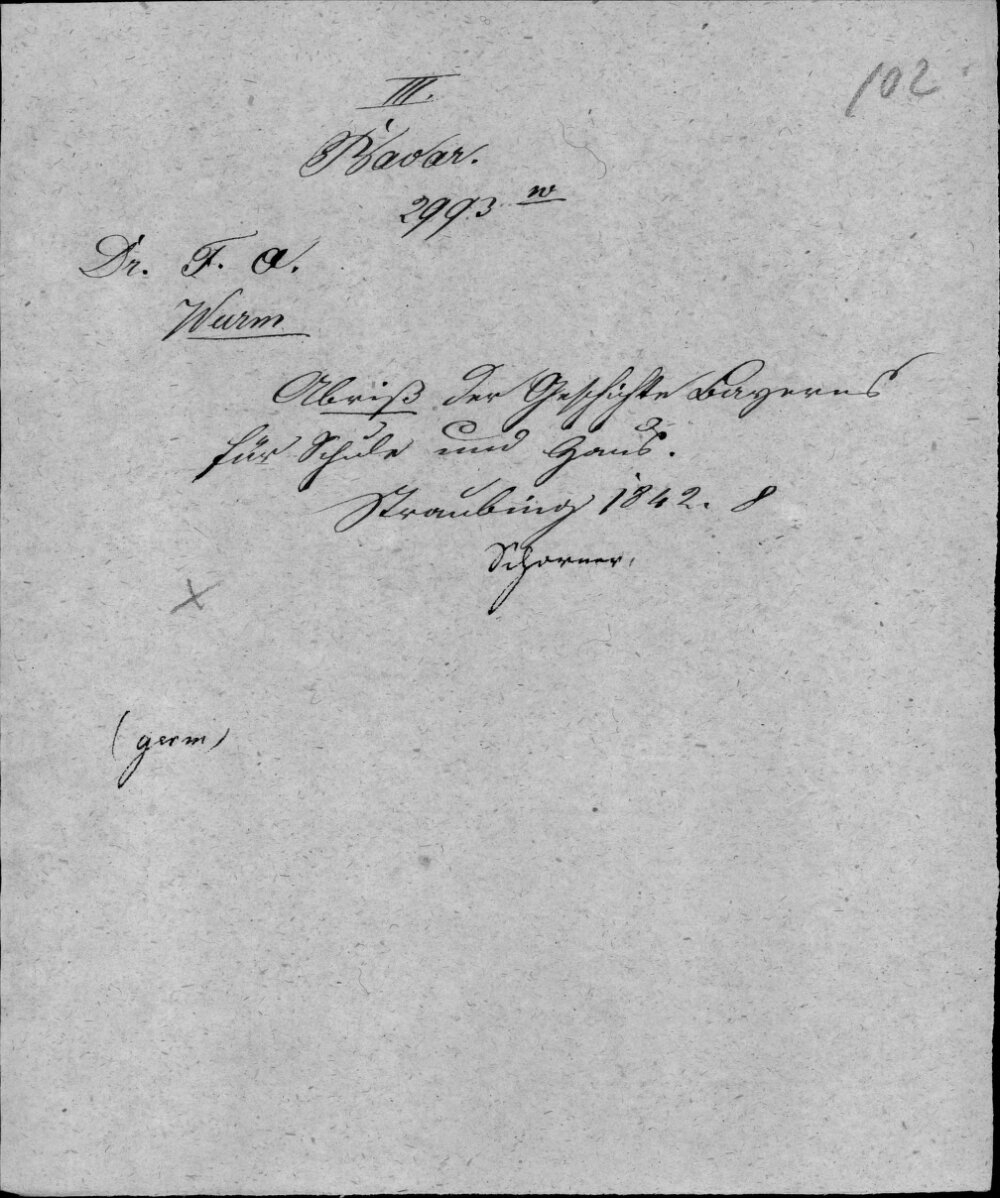 102
III.
Bavar.
2993 w
Dr. F. A.
Wurm
Abriß der Geschichte Bayerns
für Schule und Haus.
Straubing 1842. 8
Schorner.
X
(germ)